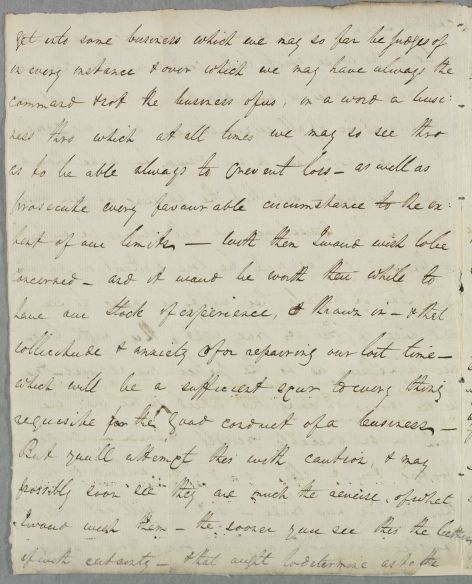 get into some business which we may so far be Judges of
in every instance & over which we may have always the
command & not the business of us, in a word a busi:
ness thro which at all times we may so see thro
as to be able always to prevent loss – as well as
prosecute every favourable circumstance to the ex:
tent of our limits, – with them I woud wish to be
concerned – and it woud be worth their while to
have our stock of experience, thrown in – & that
sollicitude & anxiety for repairing our lost time –
which will be a sufficient spur to every thing
requisite for the good conduct of a business, –
But you'll attempt this with caution, & may
possibly soon see they are much the reverse, of what
I woud wish them – the sooner you see this the better
if with certainty – & that ought to determine as to the